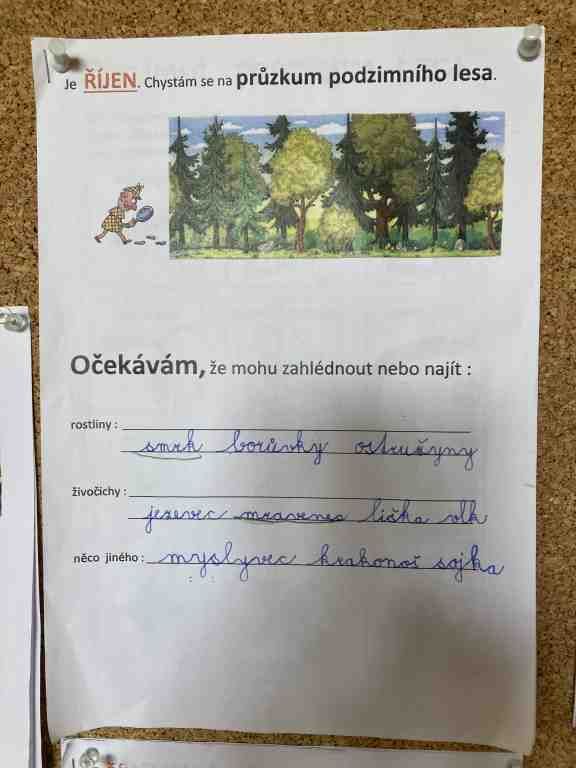 Je ŘÍJEN. Chystám se na průzkum podzimního lesa.
Očekávám, že mohu zahlédnout nebo najít :
rostliny :
smrk borůvky ostružyny
živočichy :
jezevec mravenec liška vlk
něco jiného : myslyvec krakonoš sojka